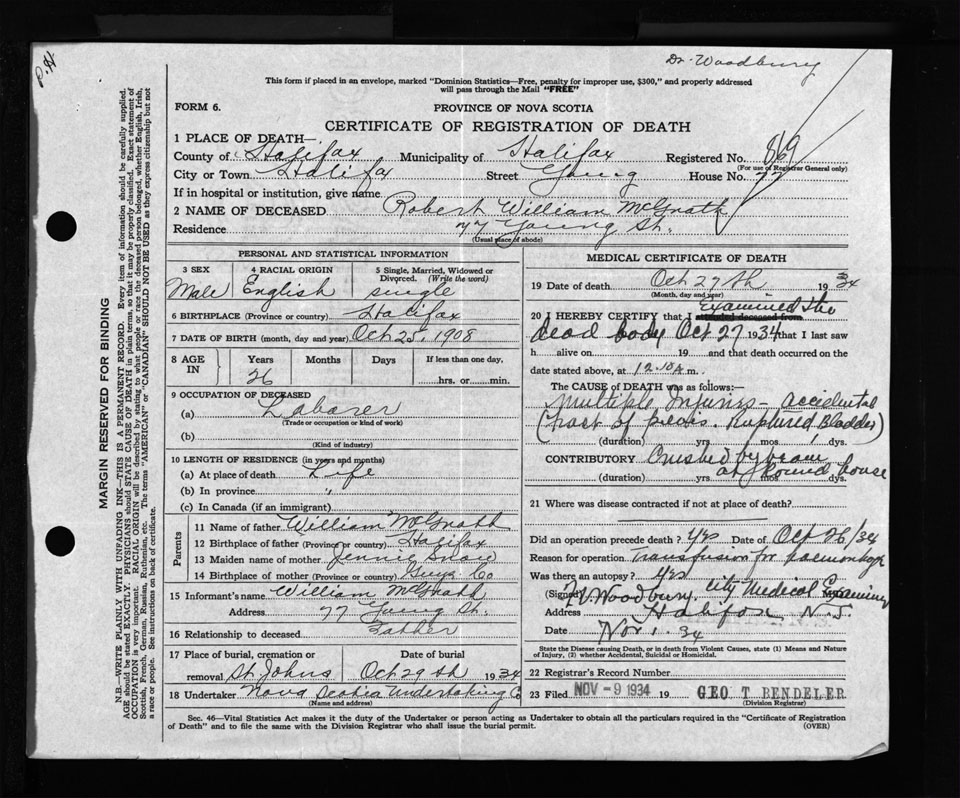 P.H.
Dr. Woodbury
This form if placed in an envelope, marked "Dominion Statistics—Free, penalty for improper use, $300," and properly addressed
will pass through the Mail "FREE"
FORM 6.
PROVINCE OF NOVA SCOTIA
CERTIFICATE OF REGISTRATION OF DEATH
1 PLACE OF DEATH—
County of Halifax Municipality of Halifax Registered No. 869
(For use of Registrar General only)
City or Town Halifax Street Young House No. 77
If in hospital or institution, give name
2 NAME OF DECEASED Robert William McGrath
Residence 77 Young St.
(Usual place of abode)
PERSONAL AND STATISTICAL INFORMATION
3 SEX 4 RACIAL ORIGIN 5 Single, Married, Widowed or
Divorced. (Write the word)
Male English single
6 BIRTHPLACE (Province or country) Halifax
7 DATE OF BIRTH (month, day and year) Oct 25, 1908
8 AGE IN Years Months Days If less than one day,
26 hrs. or min.
9 OCCUPATION OF DECEASED
(a) Laborer
(Trade or occupation or kind of work)
(b)
(Kind of industry)
10 LENGTH OF RESIDENCE (in years and months)
(a) At place of death Life
(b) In province "
(c) In Canada (if an immigrant)
Parents
11 Name of father William McGrath
12 Birthplace of father (Province or country) Halifax
13 Maiden name of mother Jennie Snow
14 Birthplace of mother (Province or country) Guys Co
15 Informant's name William McGrath
Address 77 Young St.
16 Relationship to deceased Father
17 Place of burial, cremation or Date of burial
removal St. Johns Oct 29th 1934
18 Undertaker Nova Scotia Undertaking Co
(Name and address)
MEDICAL CERTIFICATE OF DEATH
19 Date of death Oct 27th 1934
(Month, day and year)
20 I HEREBY CERTIFY that I attended deceased from examined the
dead body Oct 27 1934 that I last saw
h alive on 19 and that death occurred on the
date stated above, at 12.10 A m.
The CAUSE OF DEATH was as follows:—
Multiple Injuries - accidental
(Fract of pelvis. Ruptured Bladder)
(duration) yrs. mos. 1 dys.
CONTRIBUTORY Crushed by beam
at Round house
(duration) yrs. mos. dys.
21 Where was disease contracted if not at place of death?
Did an operation precede death? Yes Date of Oct 26/34
Reason for operation Transfusion for haemorrhage
Was there an autopsy? Yes
(Signed) Woodbury City Medical Examiner
Address Halifax N.S.
Date Nov 1. 34
State the Disease causing Death, or in death from Violent Causes, state (1) Means and Nature
of Injury, (2) whether Accidental, Suicidal or Homicidal.
22 Registrar's Record Number
23 Filed NOV - 9 1934 19 GEO T BENDELER
(Division Registrar)
Sec. 46—Vital Statistics Act makes it the duty of the Undertaker or person acting as Undertaker to obtain all the particulars required in the "Certificate of Registration
of Death" and to file the same with the Division Registrar who shall issue the burial permit.
(OVER)
MARGIN RESERVED FOR BINDING
N.B.—WRITE PLAINLY WITH UNFADING INK—THIS IS A PERMANENT RECORD. Every item of information should be carefully supplied.
AGE should be stated EXACTLY. PHYSICIANS should STATE CAUSE OF DEATH in plain terms, so that it may be properly classified. Exact statement of
OCCUPATION is very important. RACIAL ORIGIN will be described by stating to what people or race the deceased person belonged, whether English, Irish,
Scottish, French, German, Russian, Ruthenian, etc. The terms "AMERICAN" or "CANADIAN" SHOULD NOT BE USED as they express citizenship but not
a race or people. See instructions on back of certificate.